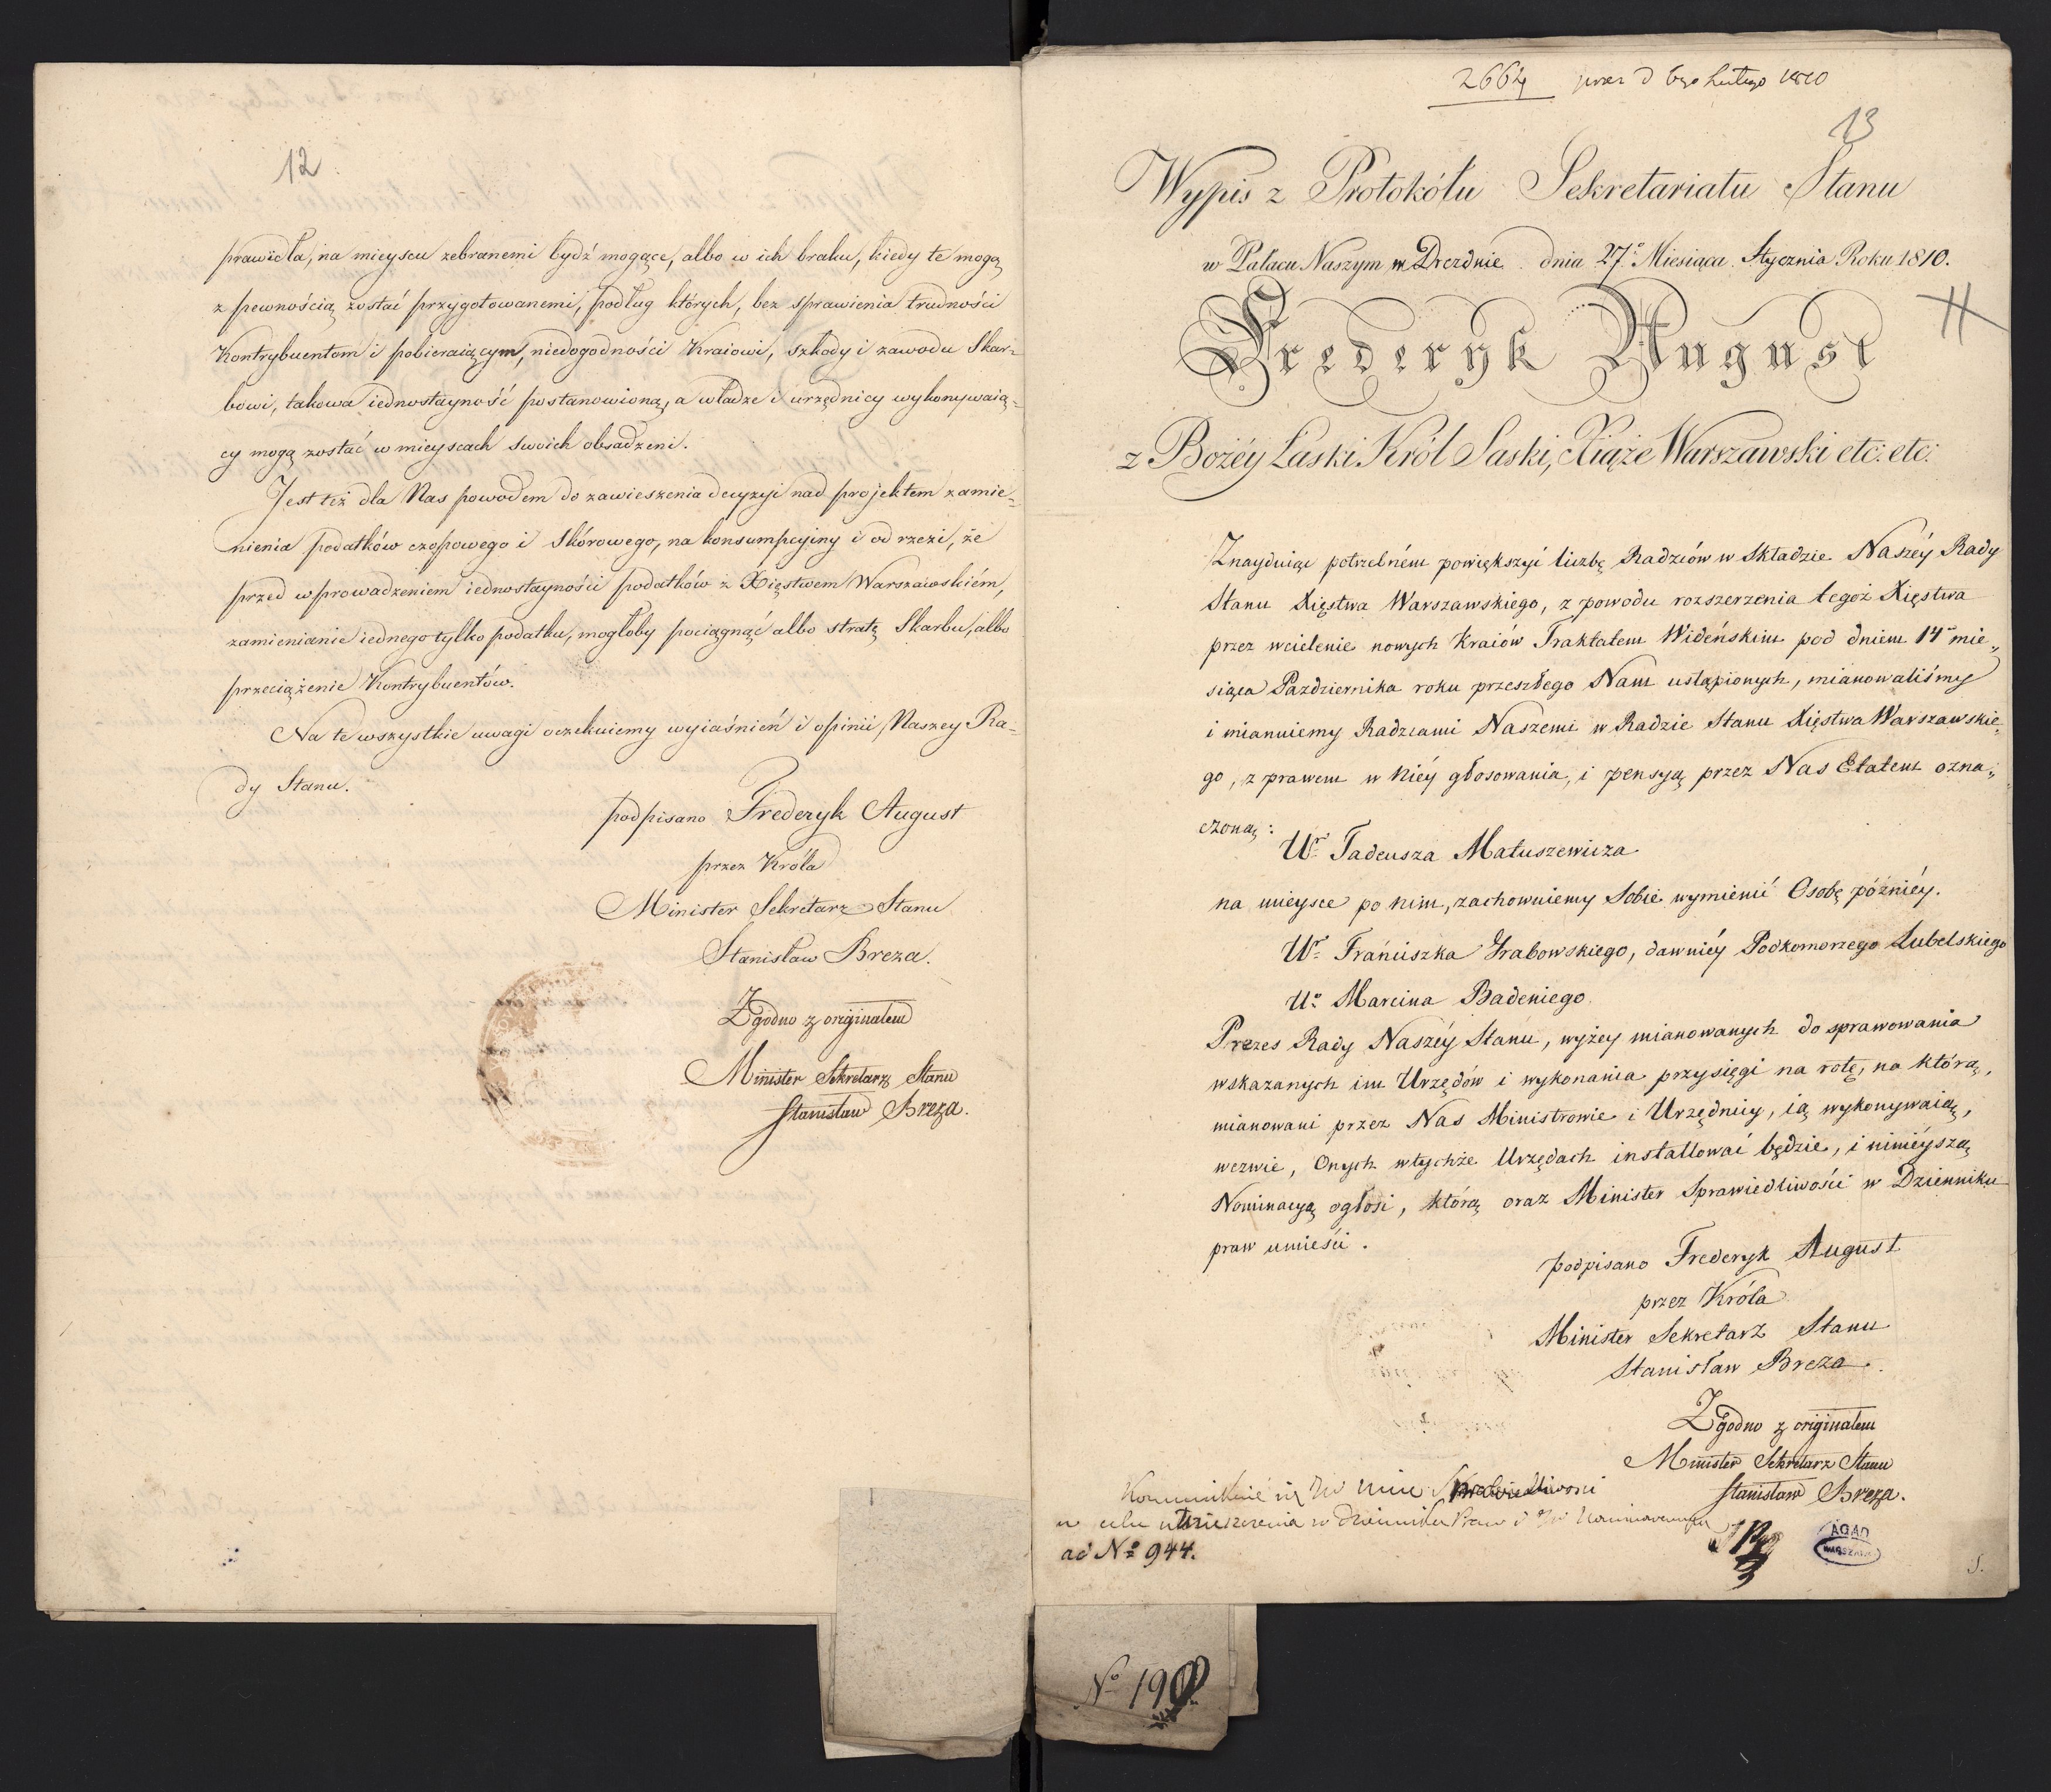 12
prawidła, na mieyscu zebranemi bydź mogące, albo w ich braku, kiedy te mogą
z pewnością zostać przygotowanemi, podług których, bez sprawienia trudności
Kontrybuentom i pobieraiącym, niedogodności Kraiowi, szkody i zawodu Skar=
bowi, takowa iednostayność postanowioną, a władze i urzędnicy wykonywaią=
cy mogą zostać w mieyscach swoich obsadzeni.
Jest też dla Nas powodem do zawieszenia decyzyi nad projektem zamie=
nienia podatków czopowego i Skórowego, na konsumpcyiny i od rzezi, że
przed wprowadzeniem iednostayności podatków z Xięstwem Warszawskiém,
zamienianie iednego tylko podatku, mogłoby pociągnąć albo stratę Skarbu, albo
przeciążenie Kontrybuentów.
Na te wszystkie uwagi oczekuiemy wyiaśnień i opinii Naszey Ra=
dy Stanu.
podpisano Frederyk August
przez Króla
Minister Sekretarz Stanu
Stanisław Breza.
Zgodno z originałem
Minister Sekretarz Stanu
Stanisław Breza.
2664 prez d 6go Lutego 1810
13
Wypis z Protokółu Sekretariatu Stanu
w Pałacu Naszym w Dreźdnie dnia 27º Miesiąca Stycznia Roku 1810.
Frederyk August
z Bożéy Łaski Król Saski, Xiąże Warszawski etc: etc:
Znayduiąc potrzebném powiększyć liczbę Radzców w Składzie Naszéy Rady
Stanu Xięstwa Warszawskiego, z powodu rozszerzenia tegoż Xięstwa
przez wcielenie nowych Kraiów Traktatem Wideńskim pod dniem 14º mie„
siąca Pazdziernika roku przeszłego Nam ustąpionych, mianowaliśmy
i mianuiemy Radzcami Naszemi w Radzie Stanu Xięstwa Warszawskie„
go, z prawem w Niéy głosowania, i pensyą przez Nas Etatem ozna„
czoną:
Ur. Tadeusza Matuszewicza
na mieysce po nim, zachowuiemy Sobie wymienić Osobę późniéy.
Ur. Franciszka Grabowskiego, dawniéy Podkomorzego Lubelskiego
Ur. Marcina Badeniego
Prezes Rady Naszéy Stanu, wyżey mianowanych do sprawowania
wskazanych im Urzędów i wykonania przysięgi na rotę, na którą,
mianowani przez Nas Ministrowie i Urzędnicy, ią wykonywaią,
wezwie, Onych w tychże Urzędach installować będzie, i ninieyszą
Nominacyą ogłosi, którą oraz Minister Sprawiedliwości w Dzienniku
praw umieści.
podpisano Frederyk August
przez Króla
Minister Sekretarz Stanu
Stanisław Breza.
Zgodno z originałem
Minister Sekretarz Stanu
Stanisław Breza.
w celu umieszczenia w dzienniku Praw
ad Nº 944.
AGAD
WARSZAWA
Nº 190